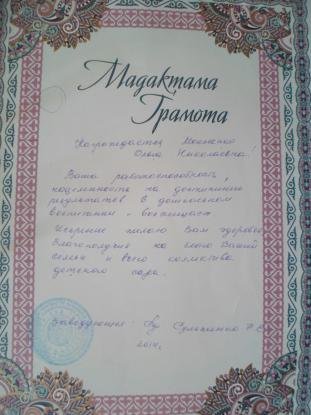 Мадактама
Грамота
Награждается
Ольга Николаевна!
Ваша работоспособность,
нацеленность на достижение
результатов в дошкольном
воспитании - восхищает
Искренне желаю Вам здоровья
благополучия на благо Вашей
семьи и всего коллектива
детского сада.
Заведующая:
2014г.